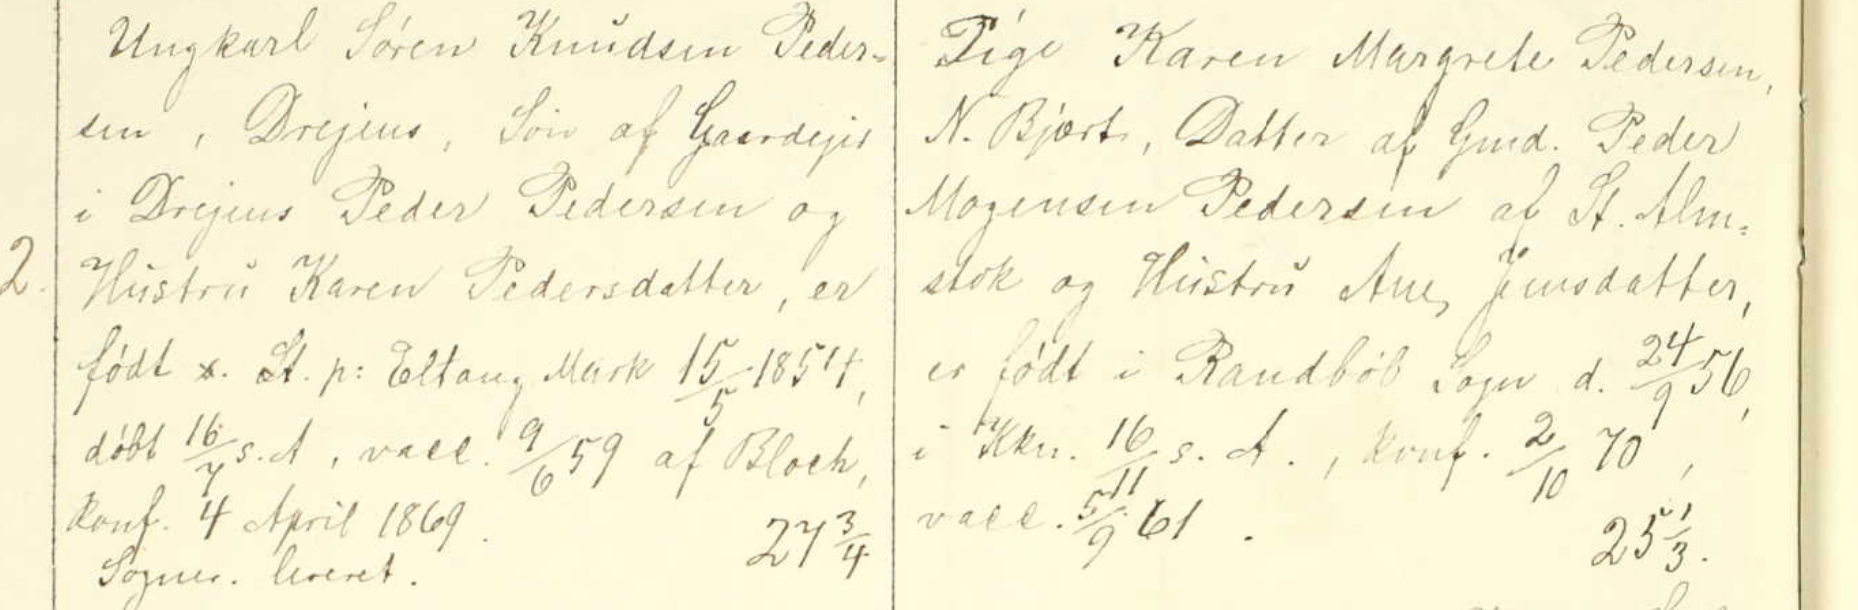 2.
Ungkarl Søren Knudsen Peder-
sen, Drejens, Søn af Gaardejer
i Drejens Peder Pedersen og
Hustru Karen Pedersdatter, er
født St. p: Eltang Mark 15/5 1854,
døbt 16/7 s. A, vacc. 9/6 59 af Bloch,
konf. 4 April 1869.
27 3/4
Sogner. leveret.
Pige Karen Margrete Pedersen,
N. Bjært, Datter af Gmd. Peder
Mogensen Pedersen af St. Alm-
stok og Hustru Ane Jensdatter,
er født i Randbøl Sogn d. 24/9 56,
i Kkn. 16/11 s. A., konf. 2/10 70,
vacc. 5/9 61.
25 1/3.